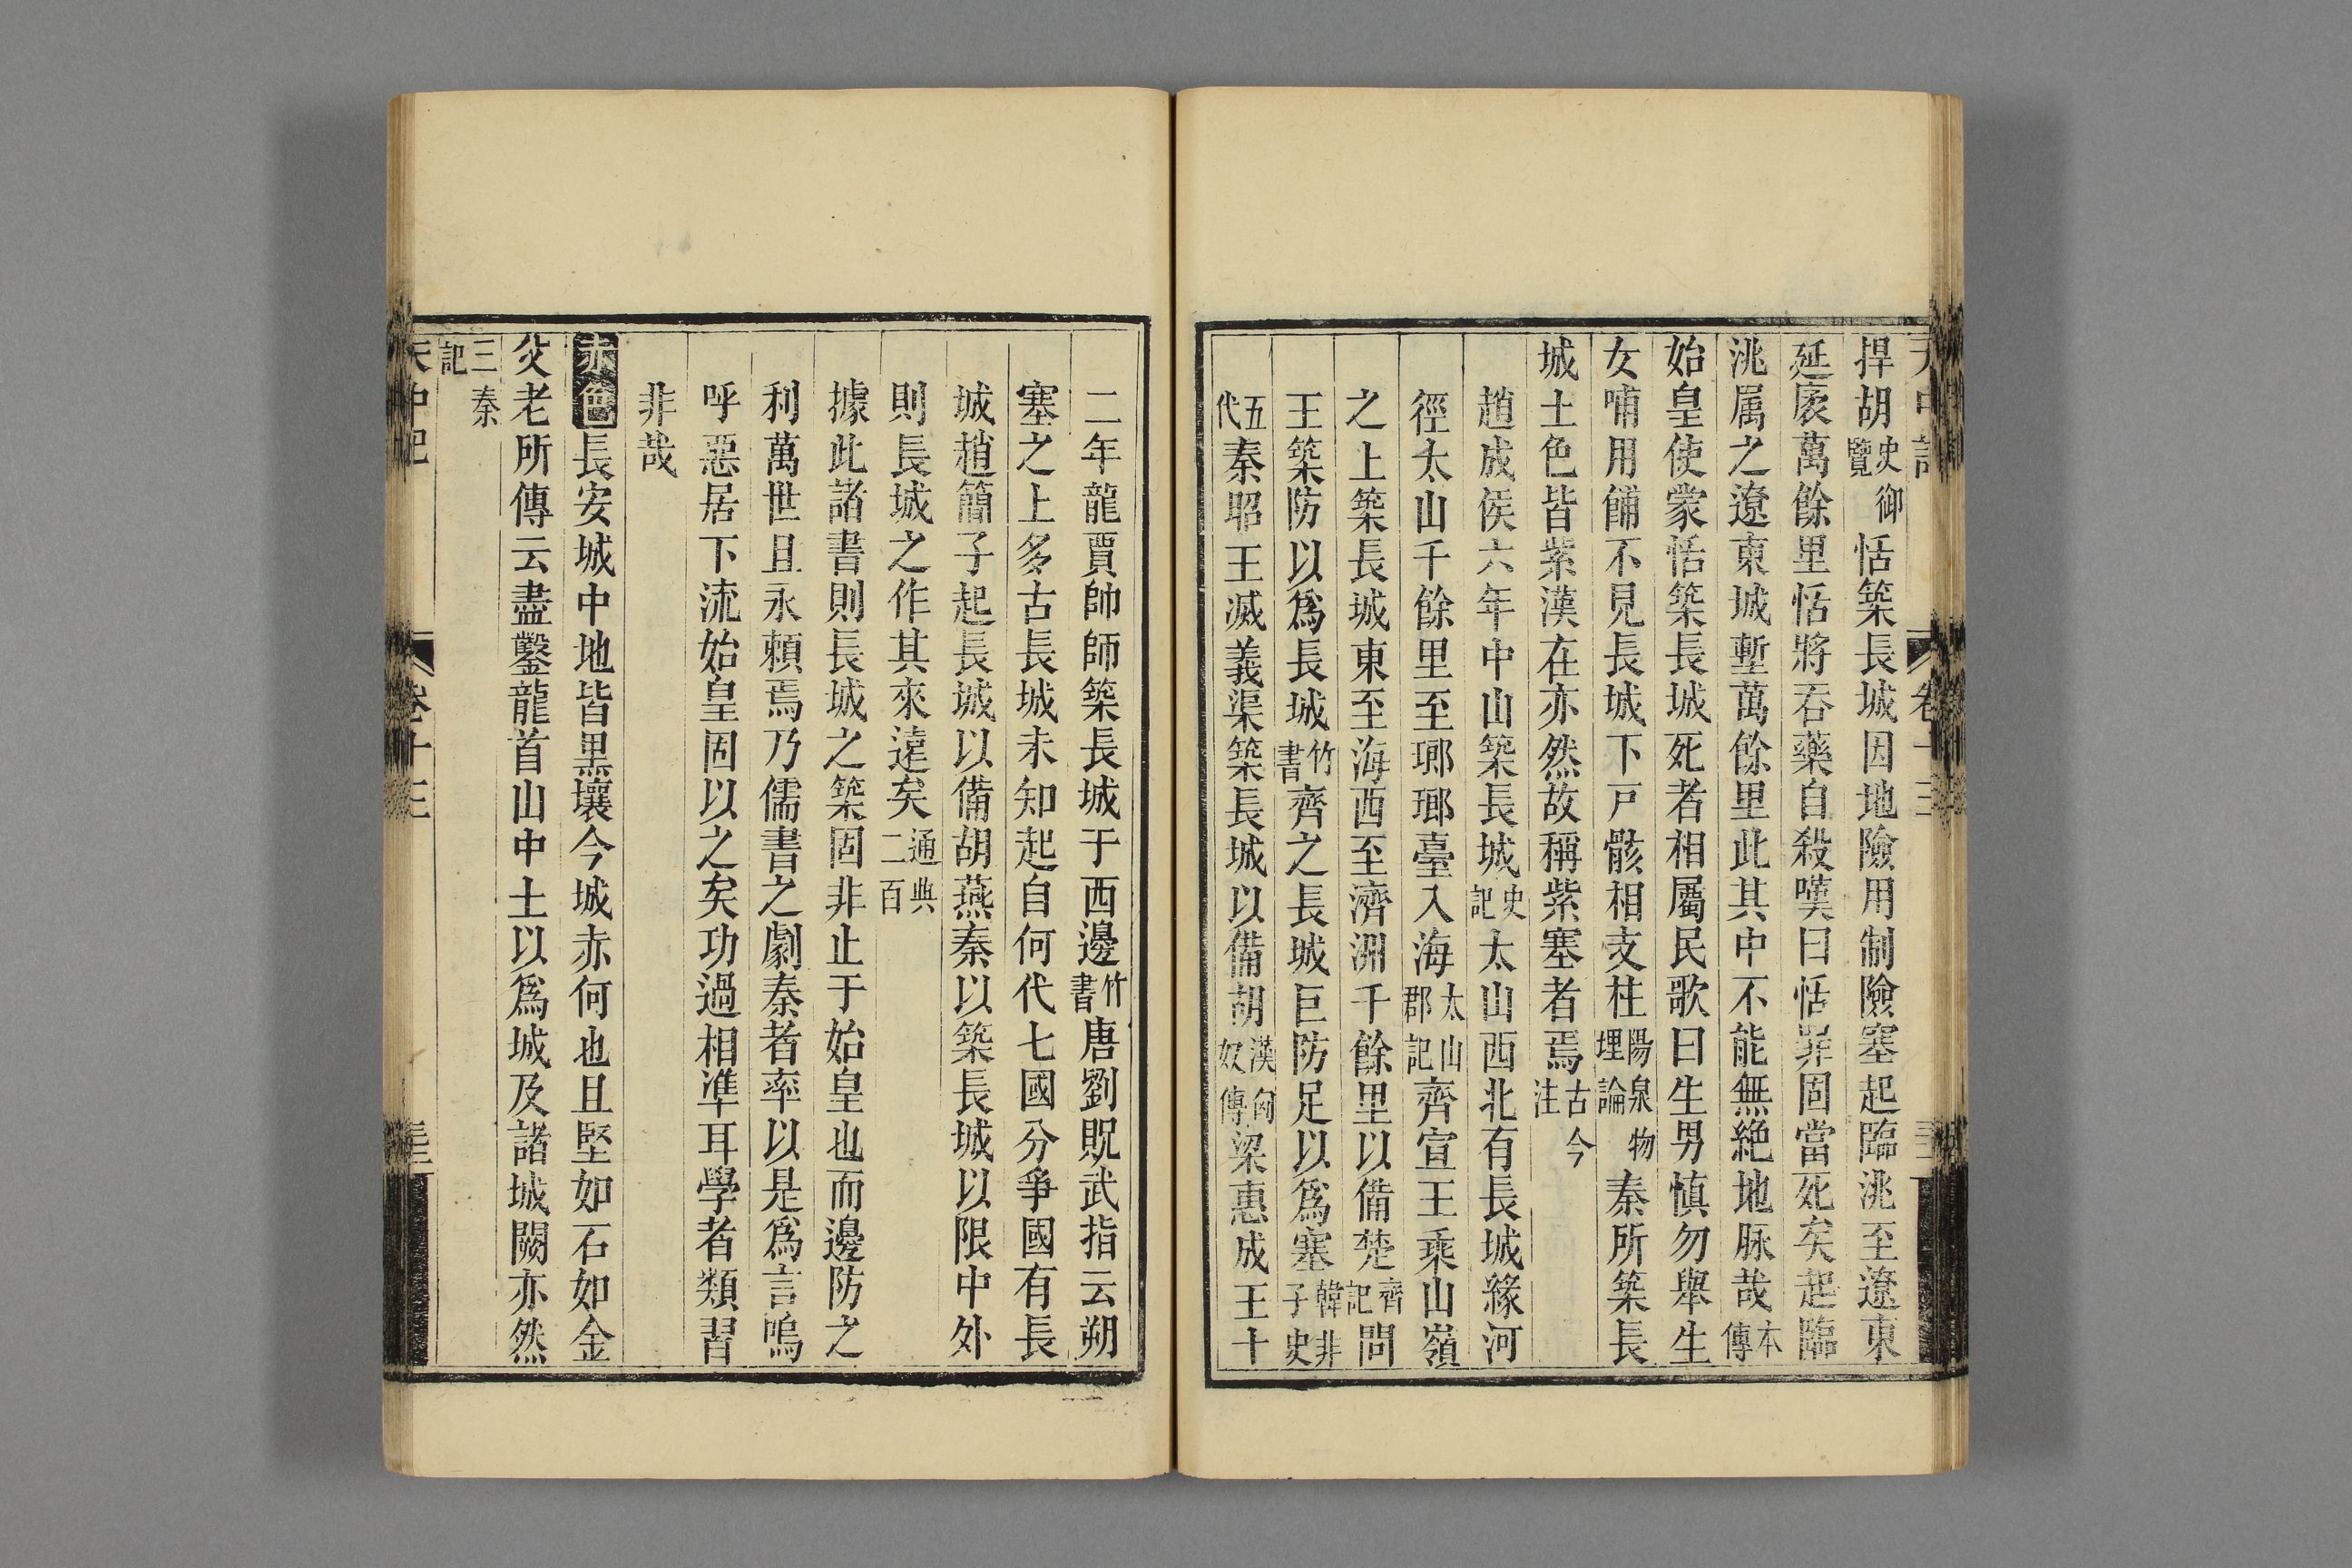 捍胡史御覽恬築長城因地險用制險塞起臨洮至遼東
延袤萬餘里恬將吞藥自殺嘆曰恬罪固當死矣起臨
洮属之遼東城塹萬餘里此其中不能無絶地脉哉本傳
始皇使蒙恬築長城死者相屬民歌曰生男慎勿舉生
女哺用餔不見長城下尸骸相支柱陽泉物理論秦所築長
城土色皆紫漢在亦然故稱紫塞者焉古今注
趙成侯六年中山築長城史記太山西北有長城緣河
徑太山千餘里至瑯瑯臺入海太山郡記齊宣王乘山嶺
之上築長城東至海西至濟洲千餘里以備楚齊記問
王築防以爲長城竹書齊之長城巨防足以爲塞韓非子史
五代秦昭王滅義渠築長城以備胡漢匈奴傳梁惠成王十
二年龍賈帥師築長城于西邊竹書唐劉貺武指云朔
塞之上多古長城未知起自何代七國分爭國有長
城趙簡子起長城以備胡燕秦以築長城以限中外
則長城之作其來遠矣通典二百
據此諸書則長城之築固非止于始皇也而邊防之
利萬世且永賴焉乃儒書之劇秦者率以是爲言嗚
呼惡居下流始皇固以之矣功過相準耳學者類習
非哉
赤色長安城中地皆黑壤今城赤何也且堅如石如金
父老所傳云盡鑿龍首山中土以爲城及諸城闕亦然
三秦記
天中記 卷十三